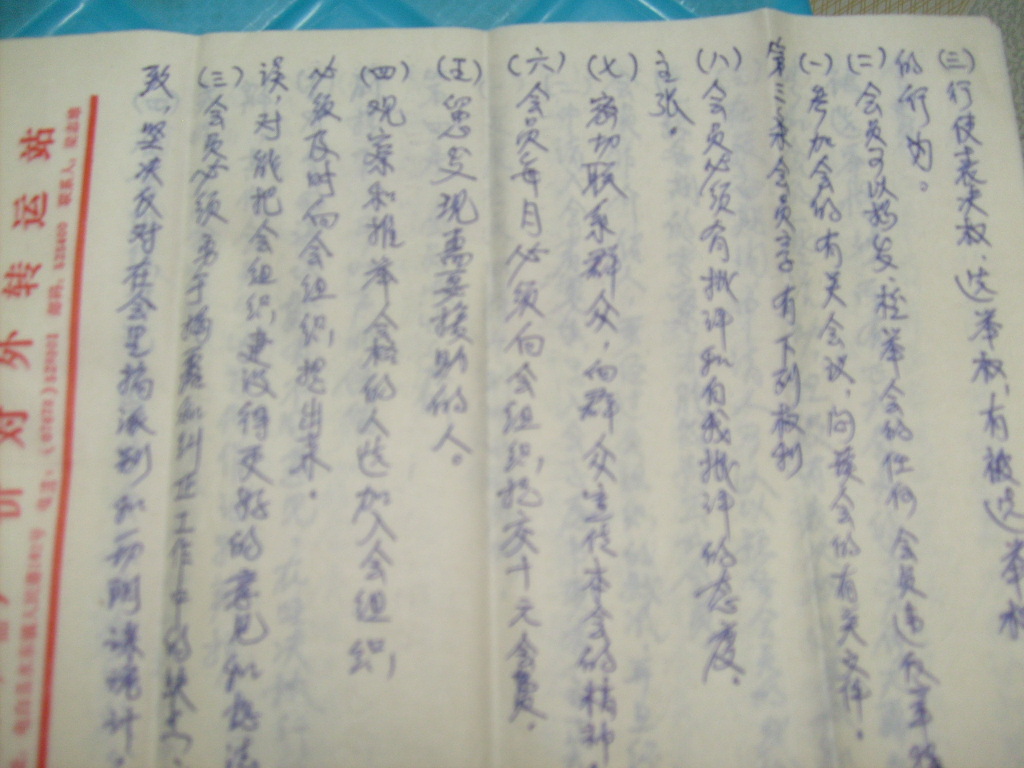 对外转运站
致,坚决反对在会里搞派别和一切阴谋诡计。
(三)会员必须勇于揭露和纠正工作中的缺点、
误,对能把会组织建设得更好的意见和想法
必须及时向会组织提出来。
(四)观察和推举合格的人选加入会组织,
(五)留意发现需要援助的人。
(六)会员每月必须向会组织提交十元会费。
(七)密切联系群众,向群众宣传本会的精神
主张。
(八)会员必须有批评和自我批评的态度。
第三条会员享有下列权利
(一)参加会的有关会议,阅读会的有关文件。
(二)会员可以揭发、检举会的任何会员违反章程
的行为。
(三)行使表决权,选举权,有被选举权